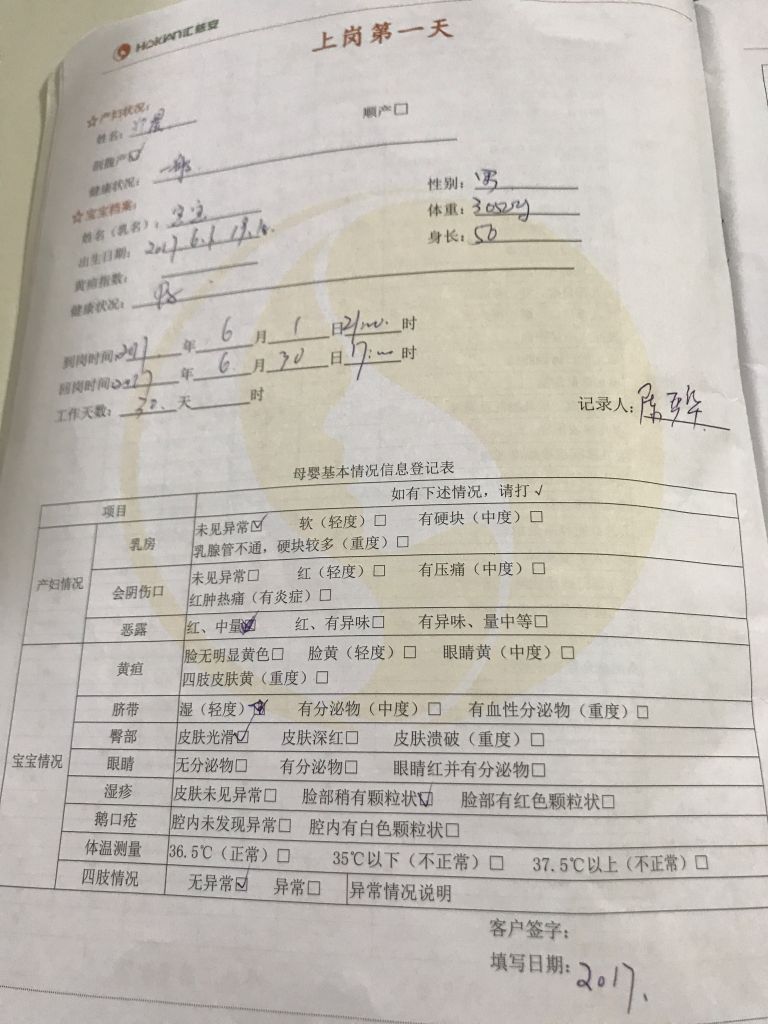 HOKIAN汇核安
上岗第一天
☆产妇状况:
姓名: 顺产□
剖腹产☑
健康状况: 一般
☆宝宝档案: 性别: 男
姓名(乳名): 宝宝 体重: 3052g
出生日期: 2017.6.1 身长: 50
黄疸指数:
健康状况:
到岗时间:2017年 6 月 1 日21:00时
回岗时间:2017年 6 月 30 日17:00时
工作天数: 30. 天 时
记录人:
母婴基本情况信息登记表
项目 如有下述情况,请打√
产妇情况 乳房 未见异常☑ 软(轻度)□ 有硬块(中度)□
乳腺管不通,硬块较多(重度)□
会阴伤口 未见异常□ 红(轻度)□ 有压痛(中度)□
红肿热痛(有炎症)□
恶露 红、中量☑ 红、有异味□ 有异味、量中等□
宝宝情况 黄疸 脸无明显黄色□ 脸黄(轻度)□ 眼睛黄(中度)□
四肢皮肤黄(重度)□
脐带 湿(轻度)☑ 有分泌物(中度)□ 有血性分泌物(重度)□
臀部 皮肤光滑☑ 皮肤深红□ 皮肤溃破(重度)□
眼睛 无分泌物□ 有分泌物□ 眼睛红并有分泌物□
湿疹 皮肤未见异常□ 脸部稍有颗粒状☑ 脸部有红色颗粒状□
鹅口疮 腔内未发现异常□ 腔内有白色颗粒状□
体温测量 36.5℃(正常)□ 35℃以下(不正常)□ 37.5℃以上(不正常)□
四肢情况 无异常☑ 异常□ 异常情况说明
客户签字:
填写日期: 2017.